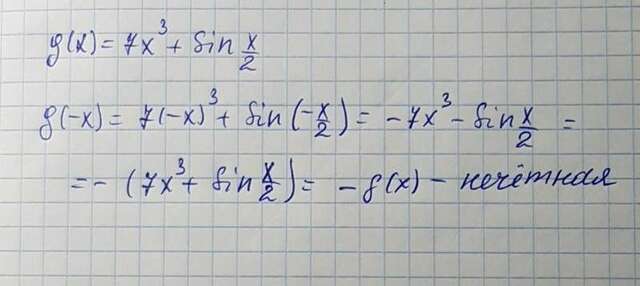 g(x) = 7x³ + sin x/2
g(-x) = 7(-x)³ + sin(-x/2) = -7x³ - sin x/2 =
= - (7x³ + sin x/2) = -g(x) - нечётная